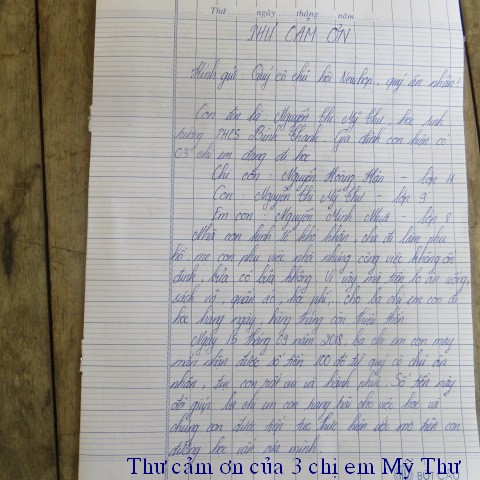 Thứ ngày tháng năm
THƯ CẢM ƠN
Kính gửi: Quý cô chú hội Newhop, quý ân nhân!
Con tên là: Nguyễn Thị Mỹ Thư, học sinh
trường THCS Bình Thạnh. Gia đình con hiện có
03 chị em đang đi học
Chị con: Nguyễn Hoàng Hân - lớp 11
Con Nguyễn Thị Mỹ Thư - lớp 9
Em con: Nguyễn Minh Như - lớp 8
Nhà con kinh tế khó khăn, cha đi làm phụ
hồ, mẹ con phụ việc nhà những công việc không ổn
định, bữa có bữa không. Vì vậy mà tiền lo ăn uống,
sách vở, quần áo, học phí, cho ba chị em con đi
học hàng ngày, hàng tháng còn thiếu thốn
Ngày 15 tháng 09 năm 2018, ba chị em con may
mắn nhận được số tiền 100 đô từ quý cô chú ân
nhân, con rất vui và hạnh phúc. Số tiền này
đã giúp ba chị em con trang trải cho việc học và
chúng con được tiếp tục thực hiện ước mơ trên con
đường học vấn của mình
Thư cảm ơn của 3 chị em Mỹ Thư